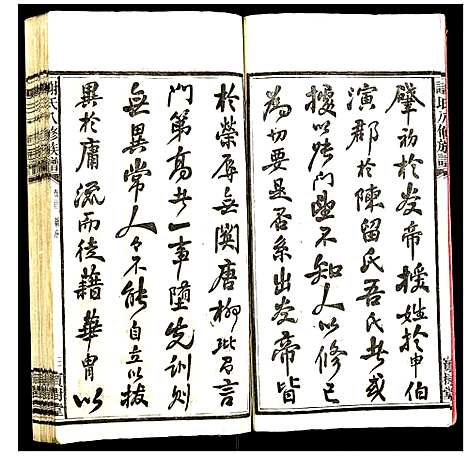 謝氏八修族譜
肇初於炎帝援姓於申伯
演郡於陳留氏吾氏者或
據以張門望不知人以修己
為切要是否系出炎帝皆
於榮辱無關唐柳玭有言
門第高者一事墮先訓則
無異常人人不能自立以拔
異於庸流而徒藉華胄以
謝氏八修族譜
寶樹堂